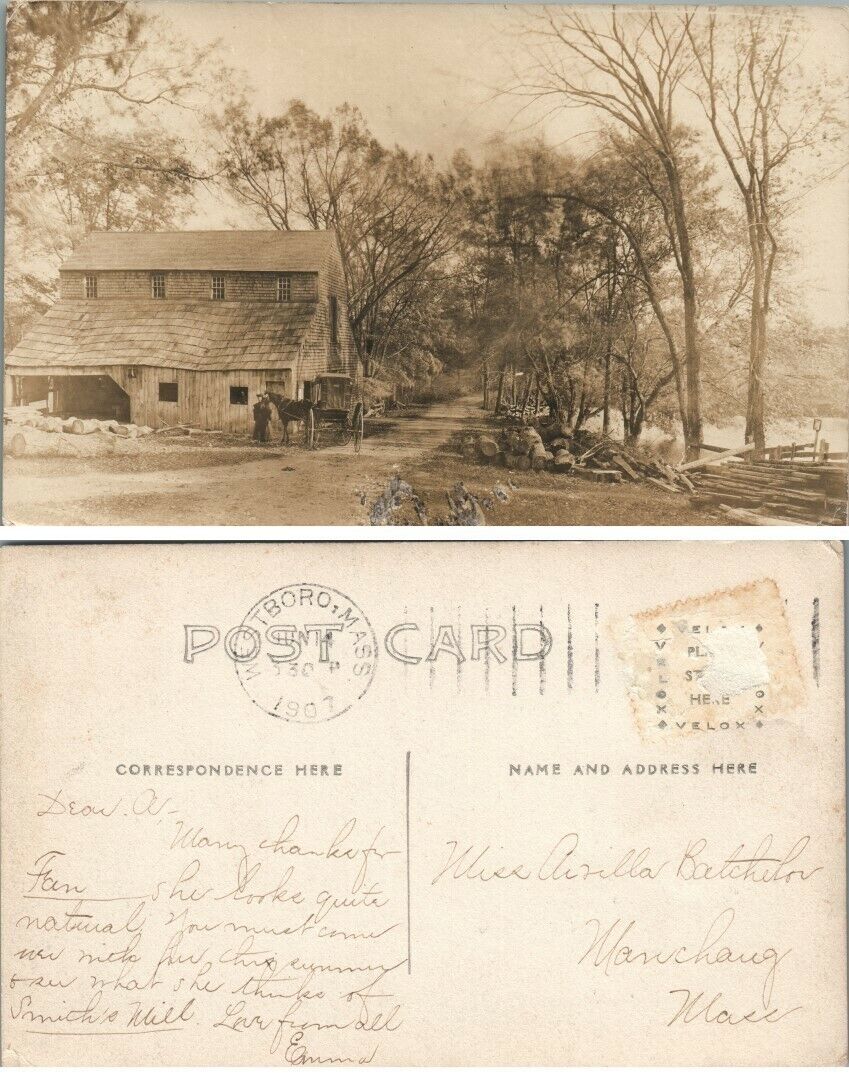 POST CARD
WESTBORO, MASS.
JUN 14
30 P
1907
VELOX
VELOX
HERE
VELOX
VELOX
CORRESPONDENCE HERE
NAME AND ADDRESS HERE
Dear A,-
Many thanks for
Fan she looks quite
natural, You must come
over with her this summer
& see what she thinks of
Smith's Mill. Love from all
Emma
Miss Batchelor
Manchaug
Mass